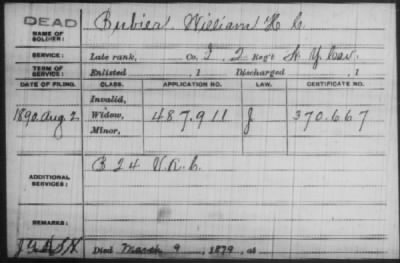 DEAD
NAME OF SOLDIER: Bubier William H. C.
SERVICE: Late rank, Co. I. 2 Reg't N. Y. Cav.
TERM OF SERVICE: Enlisted , 1 Discharged , 1
DATE OF FILING. CLASS. APPLICATION NO. LAW. CERTIFICATE NO.
Invalid,
1890 Aug. 2 Widow, 487.911 J 370.667
Minor,
ADDITIONAL SERVICES: B 24 V.R.C.
REMARKS:
Died March 9 , 1879 , at